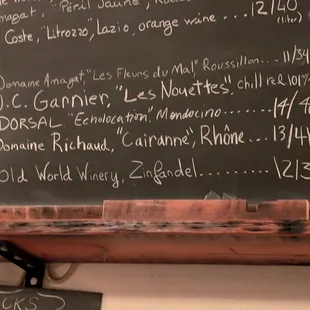 magat, "Péril Jaune,
12/40
(liter)
Coste, "Litrozzo", Lazio, orange wine ...
Domaine Amagat, "Les Fleurs du Mal," Roussillon... 11/34
J.C. Garnier, "Les Nouettes", chill red, 10/
DORSAL "Echolocation", Mendocino........14/4
Domaine Richaud, "Cairanne", Rhône... 13/4
Old World Winery, Zinfandel......... 12/3
CKS